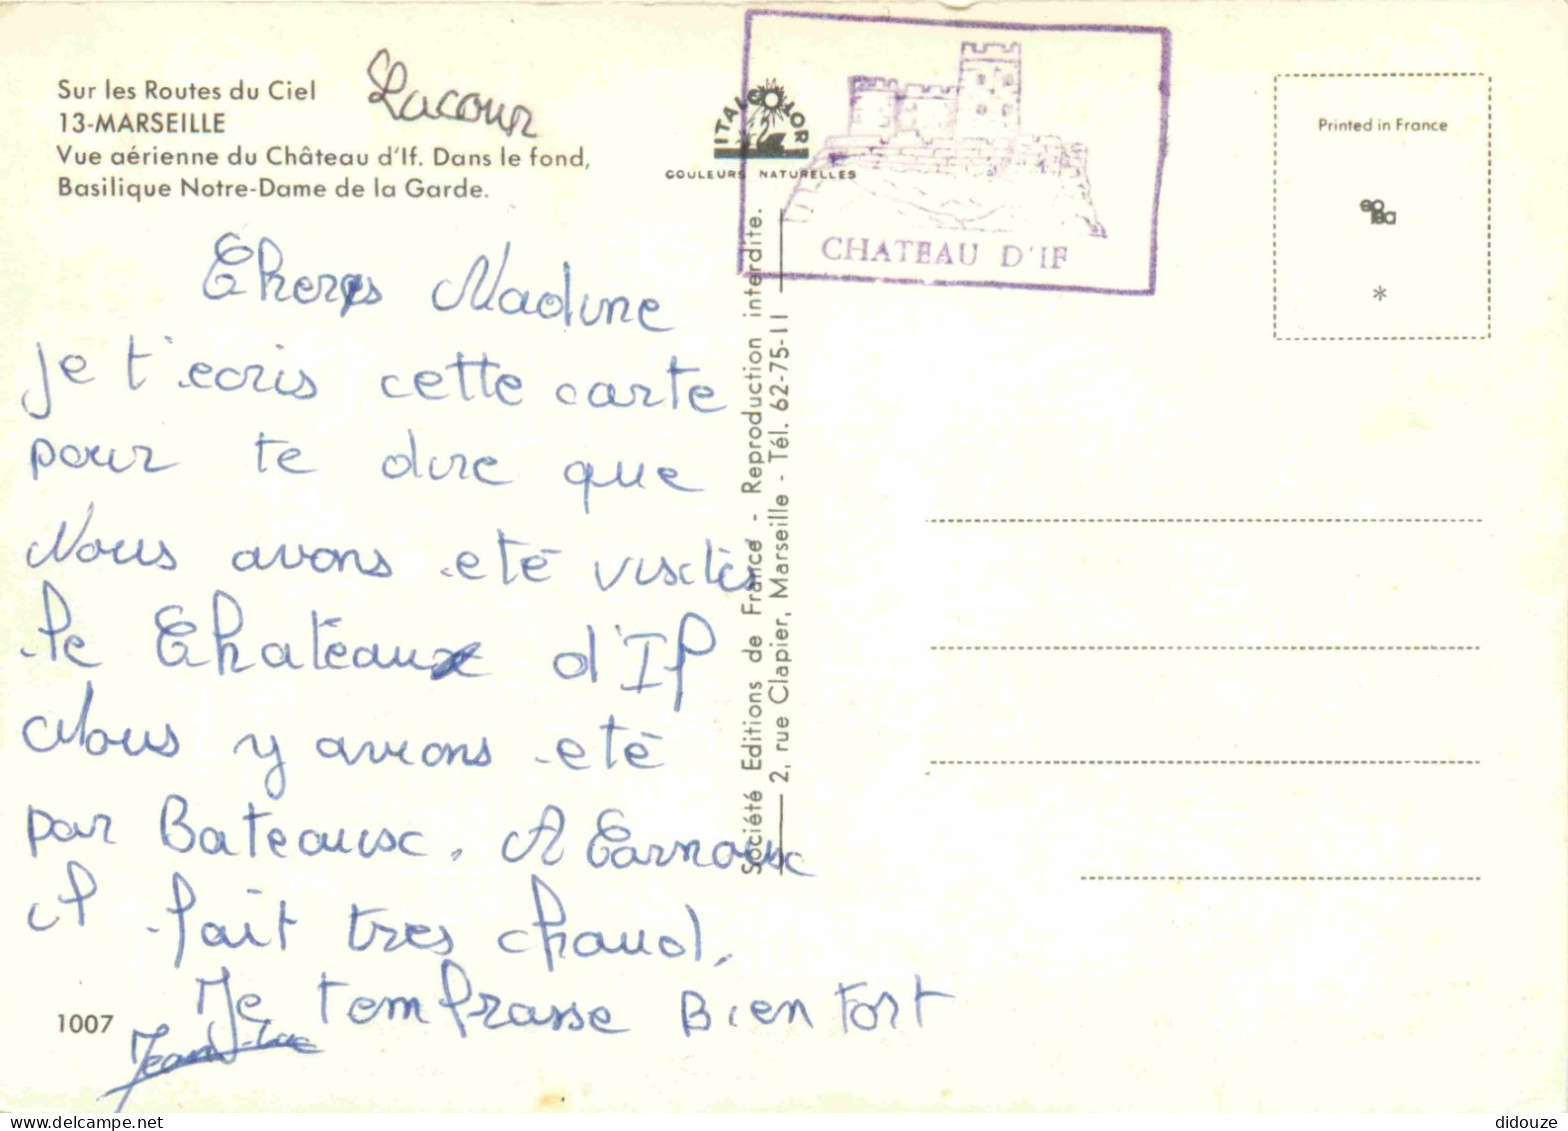 Sur les Routes du Ciel
13-MARSEILLE
Vue aérienne du Château d'If. Dans le fond,
Basilique Notre-Dame de la Garde.
Lacour
ITALCOLOR
COULEURS NATURELLES
CHATEAU D'IF
Printed in France
*
Cheres Nadine
je t'ecris cette carte
pour te dire que
Nous avons eté visités
le Chateaux d'If
Nous y avions eté
par Bateaux. A Carnoux
il fait tres chaud.
Je tembrasse Bien Fort
Jean-Luc
1007
Société Editions de France - Reproduction interdite.
2, rue Clapier, Marseille - Tél. 62-75-11
didouze